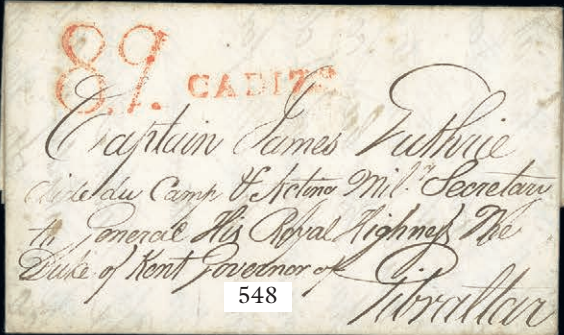 89.
CADIZ
Captain James Guthrie
Aide du Camp & Acting Mil.y Secretary
to General His Royal Highneſs The
Duke of Kent Governor of
Gibraltar
548